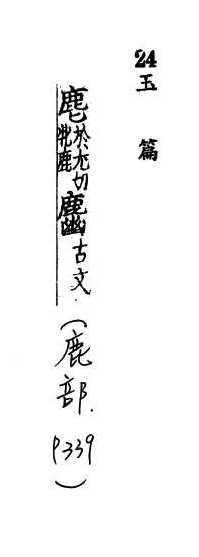 24玉篇
麀於尤切牝鹿古文.(鹿部.P339)